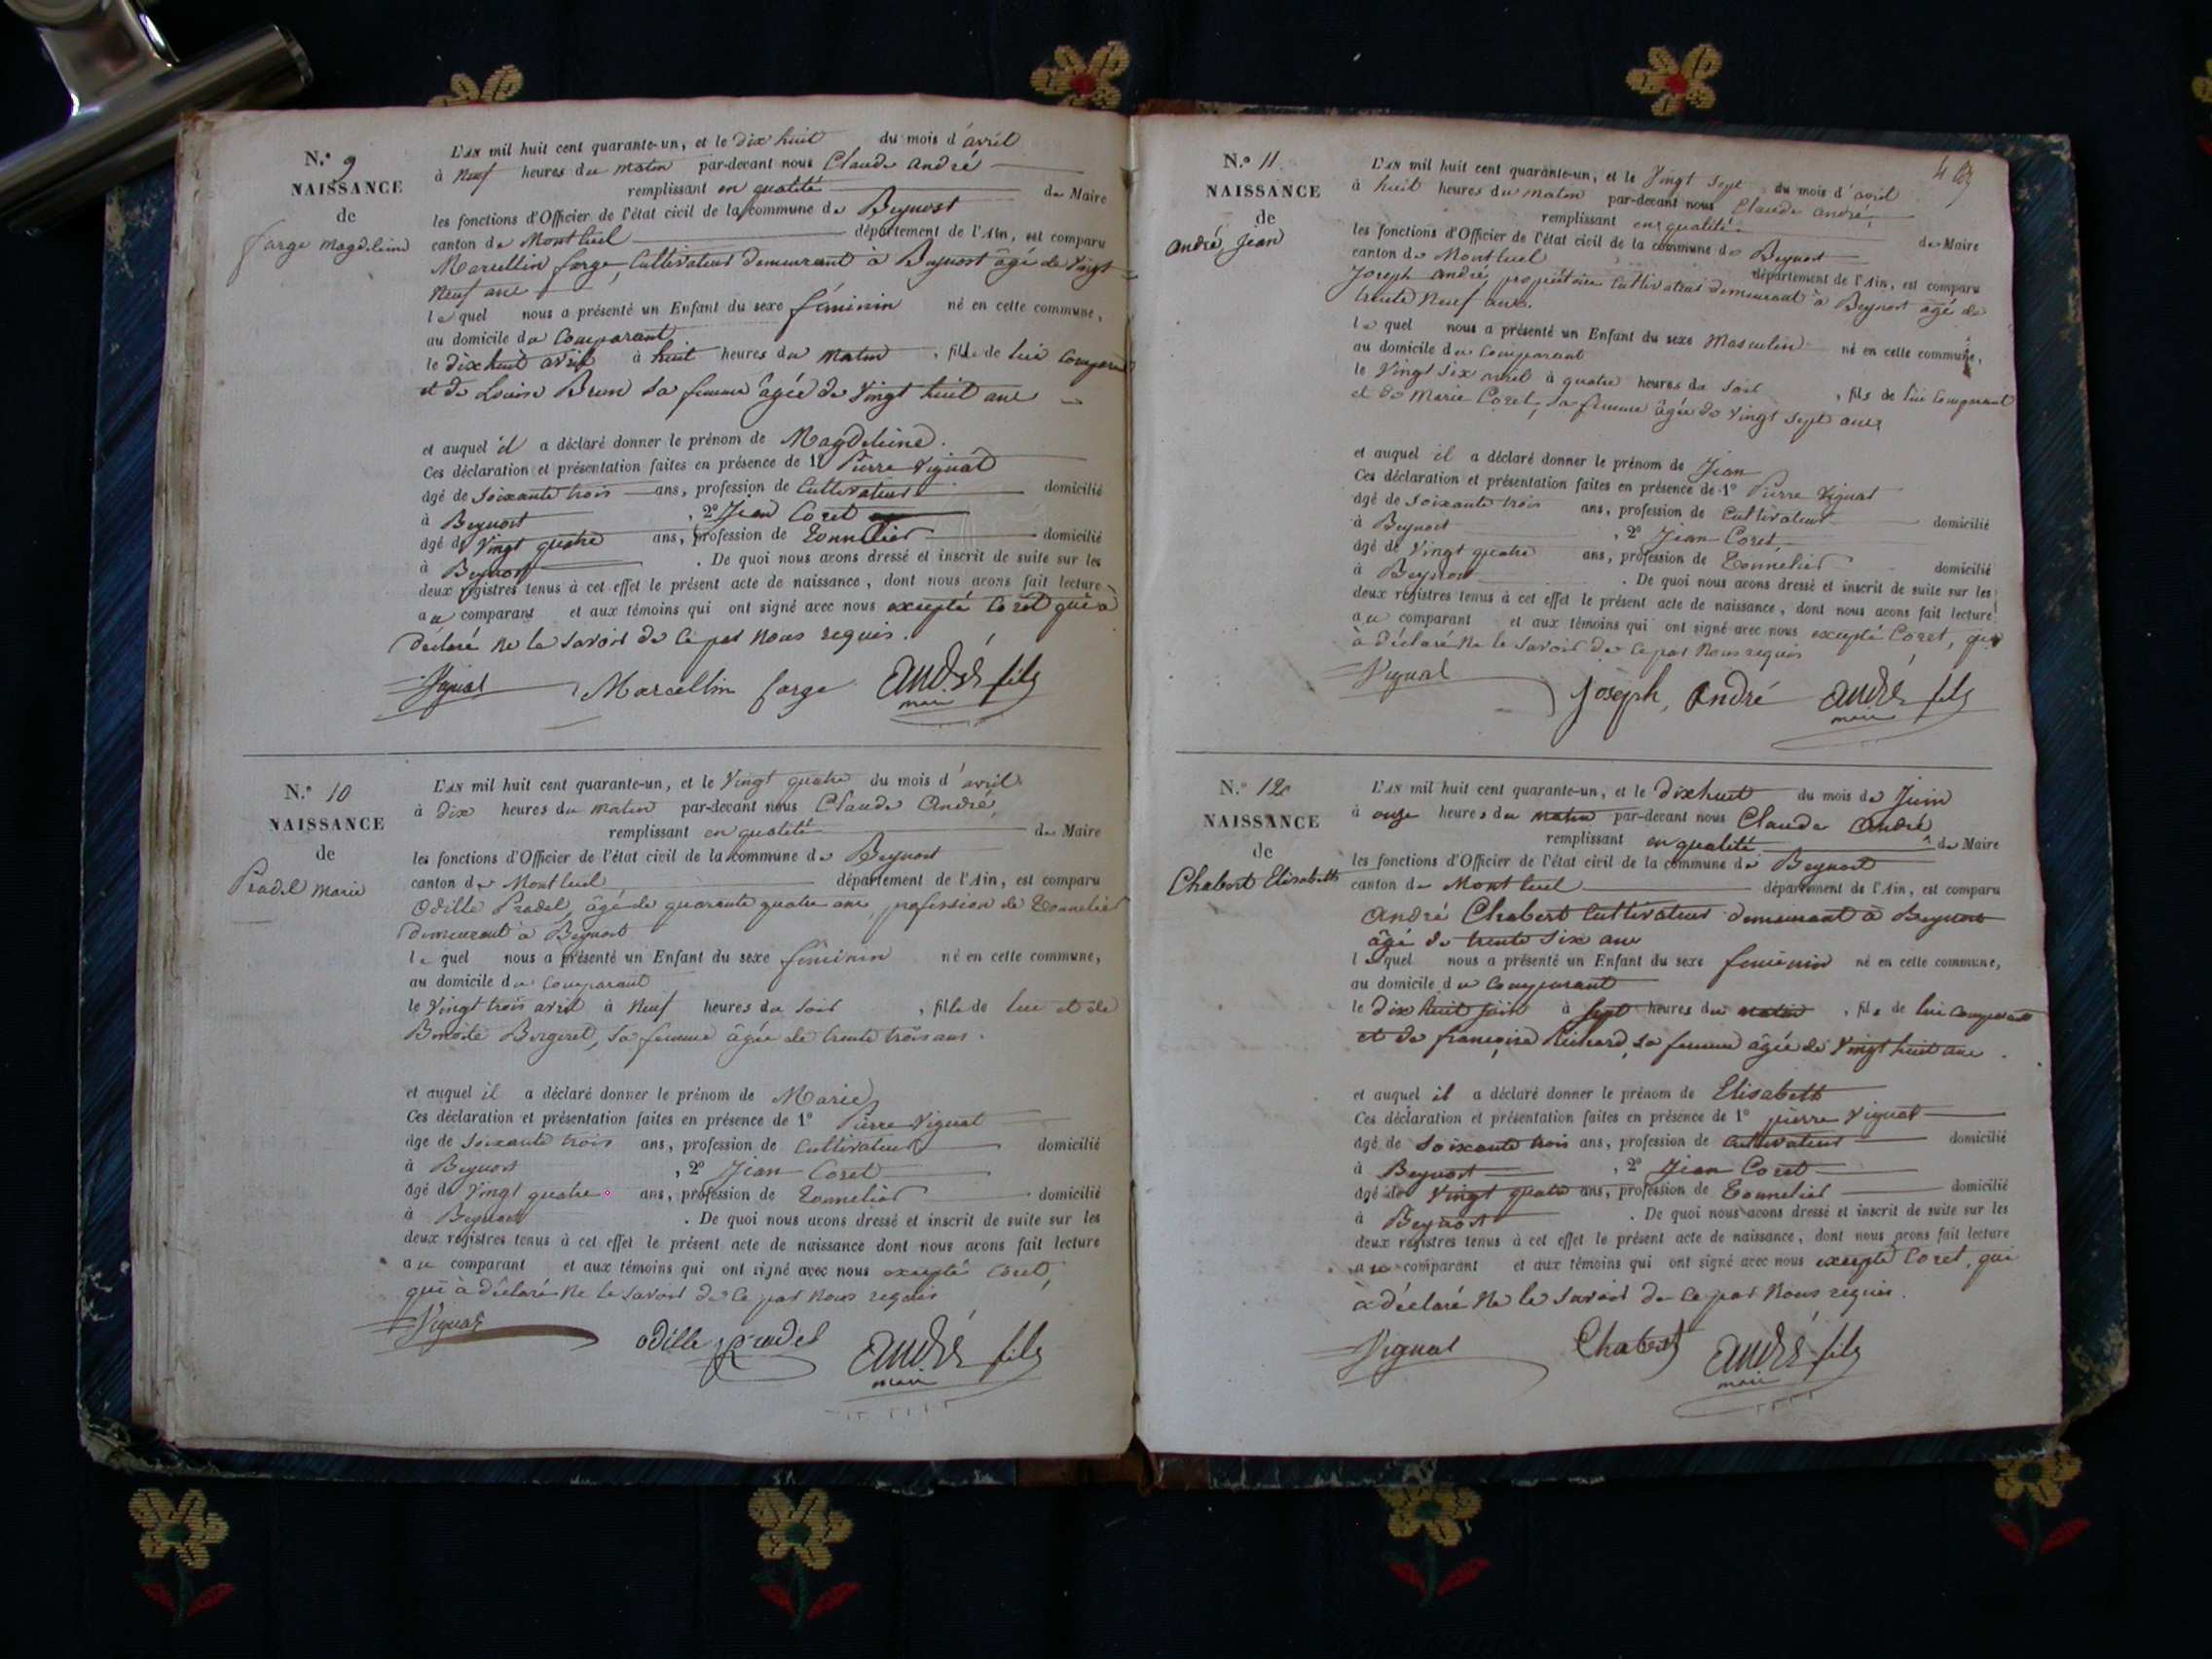 N.o 9
NAISSANCE
de
farge Magdeleine
L'AN mil huit cent quarante-un, et le dix huit du mois d'avril
à Neuf heures du matin par-devant nous Claude André
remplissant en qualité de Maire
les fonctions d'Officier de l'état civil de la commune de Beynost
canton de Montluel département de l'Ain, est comparu
Marcellin farge, Cultivateur demeurant à Beynost âgé de Vingt
Neuf ans
le quel nous a présenté un Enfant du sexe féminin né en cette commune,
au domicile du Comparant
le dix huit avril à huit heures du matin, fille de lui Comparant
et de Louise Brun sa femme âgée de Vingt huit ans
et auquel il a déclaré donner le prénom de Magdeleine.
Ces déclaration et présentation faites en présence de 1o Pierre Vignat
âgé de Soixante trois ans, profession de Cultivateur domicilié
à Beynost, 2o Jean Coret
âgé de Vingt quatre ans, profession de Tonnelier domicilié
à Beynost. De quoi nous avons dressé et inscrit de suite sur les
deux registres tenus à cet effet le présent acte de naissance, dont nous avons fait lecture
au comparant et aux témoins qui ont signé avec nous excepté Coret qui à
déclaré ne le savoir de ce par nous requis.
Vignat Marcellin farge André fils
maire
N.o 10
NAISSANCE
de
Pradel Marie
L'AN mil huit cent quarante-un, et le Vingt quatre du mois d'avril
à dix heures du matin par-devant nous Claude André,
remplissant en qualité de Maire
les fonctions d'Officier de l'état civil de la commune de Beynost
canton de Montluel département de l'Ain, est comparu
Odille Pradel, âgé de quarante quatre ans, profession de Tonnelier
demeurant à Beynost
le quel nous a présenté un Enfant du sexe féminin né en cette commune,
au domicile du Comparant
le Vingt trois avril à Neuf heures du soir, fille de lui et de
Benoite Bergeret, sa femme âgée de trente trois ans.
et auquel il a déclaré donner le prénom de Marie
Ces déclaration et présentation faites en présence de 1o Pierre Vignat
âgé de Soixante trois ans, profession de Cultivateur domicilié
à Beynost, 2o Jean Coret
âgé de Vingt quatre ans, profession de Tonnelier domicilié
à Beynost. De quoi nous avons dressé et inscrit de suite sur les
deux registres tenus à cet effet le présent acte de naissance dont nous avons fait lecture
au comparant et aux témoins qui ont signé avec nous excepté Coret,
qui à déclaré ne le savoir de ce par nous requis
Vignat odille pradel André fils
maire
N.o 11
NAISSANCE
de
André Jean
L'AN mil huit cent quarante-un, et le Vingt Sept du mois d'avril
à huit heures du matin par-devant nous Claude André,
remplissant en qualité de Maire
les fonctions d'Officier de l'état civil de la commune de Beynost
canton de Montluel département de l'Ain, est comparu
Joseph André, propriétaire Cultivateur demeurant à Beynost âgé de
trente Neuf ans.
le quel nous a présenté un Enfant du sexe Masculin né en cette commune,
au domicile du Comparant
le Vingt Six avril à quatre heures du soir, fils de lui Comparant
et de Marie Coret, sa femme âgée de Vingt Sept ans
et auquel il a déclaré donner le prénom de Jean
Ces déclaration et présentation faites en présence de 1o Pierre Vignat
âgé de Soixante trois ans, profession de Cultivateur domicilié
à Beynost, 2o Jean Coret,
âgé de Vingt quatre ans, profession de Tonnelier domicilié
à Beynost. De quoi nous avons dressé et inscrit de suite sur les
deux registres tenus à cet effet le présent acte de naissance, dont nous avons fait lecture
au comparant et aux témoins qui ont signé avec nous excepté Coret, qui
à déclaré ne le savoir de ce par nous requis
Vignat Joseph, André André fils
maire
N.o 12
NAISSANCE
de
Chabert Elisabeth
L'AN mil huit cent quarante-un, et le dixhuit du mois de Juin
à onze heures du matin par-devant nous Claude André,
remplissant en qualité de Maire
les fonctions d'Officier de l'état civil de la commune de Beynost
canton de Montluel département de l'Ain, est comparu
André Chabert Cultivateur demeurant à Beynost
âgé de trente Six ans
le quel nous a présenté un Enfant du sexe feminin né en cette commune,
au domicile du Comparant
le dix huit Juin à Sept heures du matin, fils de lui Comparant
et de françoise sa femme âgée de Vingt huit ans.
et auquel il a déclaré donner le prénom de Elisabeth
Ces déclaration et présentation faites en présence de 1o pierre Vignat
âgé de Soixante trois ans, profession de Cultivateur domicilié
à Beynost, 2o Jean Coret
âgé de Vingt quatre ans, profession de Tonnelier domicilié
à Beynost. De quoi nous avons dressé et inscrit de suite sur les
deux registres tenus à cet effet le présent acte de naissance, dont nous avons fait lecture
au comparant et aux témoins qui ont signé avec nous excepté Coret, qui
à déclaré ne le savoir de ce par nous requis.
Vignat Chabert André fils
maire